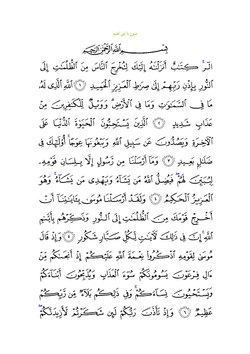 سورة إبراهيم
بِسْمِ اللَّهِ الرَّحْمَٰنِ الرَّحِيمِ
الر كِتَابٌ أَنزَلْنَاهُ إِلَيْكَ لِتُخْرِجَ النَّاسَ مِنَ الظُّلُمَاتِ إِلَى
النُّورِ بِإِذْنِ رَبِّهِمْ إِلَى صِرَاطِ الْعَزِيزِ الْحَمِيدِ ١ اللَّهِ الَّذِي لَهُ
مَا فِي السَّمَاوَاتِ وَمَا فِي الْأَرْضِ وَوَيْلٌ لِّلْكَافِرِينَ مِنْ
عَذَابٍ شَدِيدٍ ٢ الَّذِينَ يَسْتَحِبُّونَ الْحَيَاةَ الدُّنْيَا عَلَى
الْآخِرَةِ وَيَصُدُّونَ عَن سَبِيلِ اللَّهِ وَيَبْغُونَهَا عِوَجًا أُولَٰئِكَ فِي
ضَلَالٍ بَعِيدٍ ٣ وَمَا أَرْسَلْنَا مِن رَّسُولٍ إِلَّا بِلِسَانِ قَوْمِهِ
لِيُبَيِّنَ لَهُمْ فَيُضِلُّ اللَّهُ مَن يَشَاءُ وَيَهْدِي مَن يَشَاءُ وَهُوَ
الْعَزِيزُ الْحَكِيمُ ٤ وَلَقَدْ أَرْسَلْنَا مُوسَى بِآيَاتِنَا أَنْ
أَخْرِجْ قَوْمَكَ مِنَ الظُّلُمَاتِ إِلَى النُّورِ وَذَكِّرْهُم بِأَيَّامِ
اللَّهِ إِنَّ فِي ذَٰلِكَ لَآيَاتٍ لِّكُلِّ صَبَّارٍ شَكُورٍ ٥ وَإِذْ قَالَ
مُوسَى لِقَوْمِهِ اذْكُرُوا نِعْمَةَ اللَّهِ عَلَيْكُمْ إِذْ أَنجَاكُم مِّنْ
آلِ فِرْعَوْنَ يَسُومُونَكُمْ سُوءَ الْعَذَابِ وَيُذَبِّحُونَ أَبْنَاءَكُمْ
وَيَسْتَحْيُونَ نِسَاءَكُمْ وَفِي ذَٰلِكُم بَلَاءٌ مِّن رَّبِّكُمْ
عَظِيمٌ ٦ وَإِذْ تَأَذَّنَ رَبُّكُمْ لَئِن شَكَرْتُمْ لَأَزِيدَنَّكُمْ